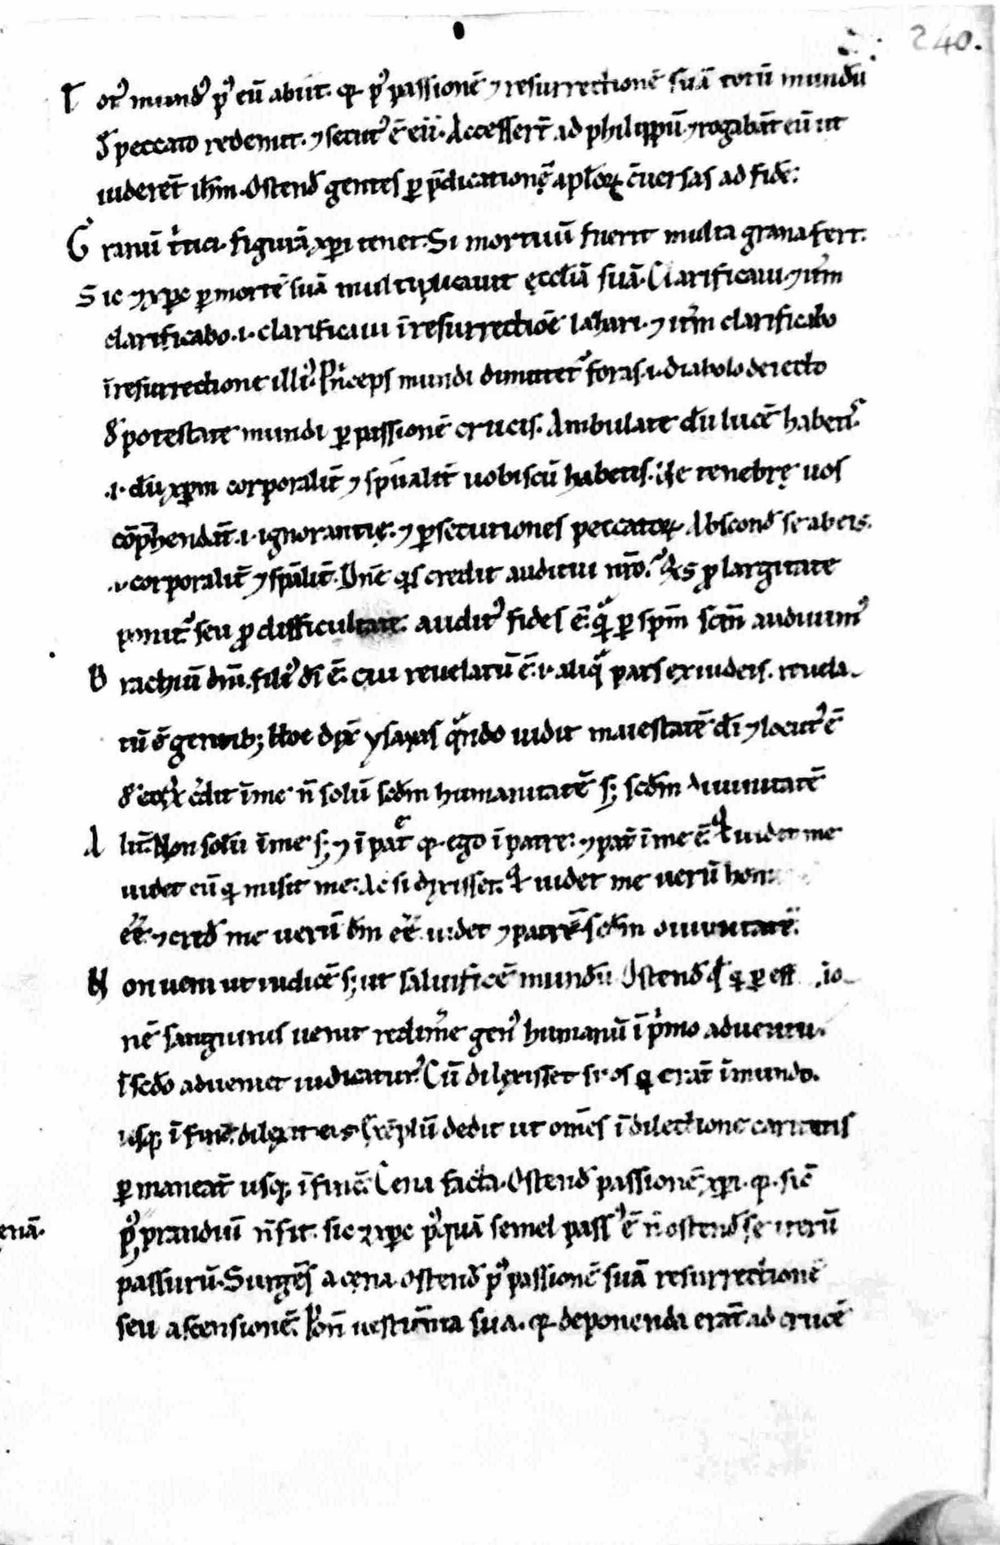 240.
Tot᷒ mund᷒ p᷒ eū abiit. qꝛ p᷒ passionē ⁊ resurrectionē suā totū mundū
đ peccato redemit. ⁊ secut᷒ ē eū. Accessert̄ ad philippū ⁊ rogabāt eū ut
uideret̄ ihm̄. Ostend̄ gentes ꝑ p̄dicationē apl̄oꝝ c̄uersas ad fidē:
Granū t̓tici. figurā xp̄i tenet. Si mortuū fuerit multa grana fert.
Sic ⁊ xp̄c ꝑ mortē suā multiplicauit ęccl̄iā suā. Clarificaui ⁊ itm̄
clarificabo .i. clarificaui ī resurrectiōe lazari. ⁊ itm̄ clarificabo
ī resurrectione illi᷒. Pͥnceps mundi dimittet᷑ foras .i. diabolo deiecto
đ potestate mundi ꝑ passionē crucis. Ambulate dū lucē habet᷒
.i. dū xp̄m corporalit̄ ⁊ sp̄ualit̄ uobiscū habetis. Ne tenebrę uos
cōp̄hendāt .i. ignorantię. ⁊ ꝑsecutiones peccatoꝝ. Abscond̄ se ab eis.
.i. corporalit̄ ⁊ sp̄ualit̄. Dn̄e qͥs credit auditui nr̄o. Qͥs ꝓ largitate
ponit᷑ seu ꝓ difficultate. audit᷒ fides ē. qͣ ꝑ sp̄m sc̄m audiuim᷒
Brachiū dn̄i. fili᷒ dī ē. cui reuelatū ē .i. aliqͣ pars ex iudeis. reuela-
tū ē gentib; Hoc dix̄ ysayas qͣndo uidit maiestatē dī ⁊ locut᷒ ē
đ eo. Qͥ c̓dit ī me n̄ solū scd̄m humanitatē s; scd̄m diuinitatē
Alit̄. Non solū ī me s; ⁊ ī patrē qꝛ ego ī patre: ⁊ pat̄ ī me ē. Qͥ uidet me
uidet eū qͥ misit me. Ac si dixisset. Qͥ uidet me uerū hom
eē̄. ⁊ cred̄ me uerū dm̄ eē̄. uidet ⁊ patrē scd̄m diuinitatē.
Non ueni ut iudicē s; ut saluificē mundū Ostend̄ qͥ ꝑ eff io-
nē sanguinis uenit redim̄e gen᷒ humanū ī pͥmo aduentu.
ī scd̄o adueniet iudicatur᷒. Cū dilexisset suos qͥ erāt ī mundo.
usqꝫ ī finē dilexit eos Exēplū dedit ut om̄es ī dilectione caritatis
ꝑmaneāt usqꝫ ī finē. Cena facta. Ostend̄ passionē xp̄i. qꝛ sic̄
p᷒ prandiū n̄ fit. sic ⁊ xp̄c p᷒quā semel pass᷒ ē n̄ ostend̄ se iterū
passurū. Surgēs a cęna. ostend̄ p᷒ passionē suā resurrectionē
seu ascensionē. Pōn̄ uestim̄ta sua. qꝛ deponenda erāt ad crucē